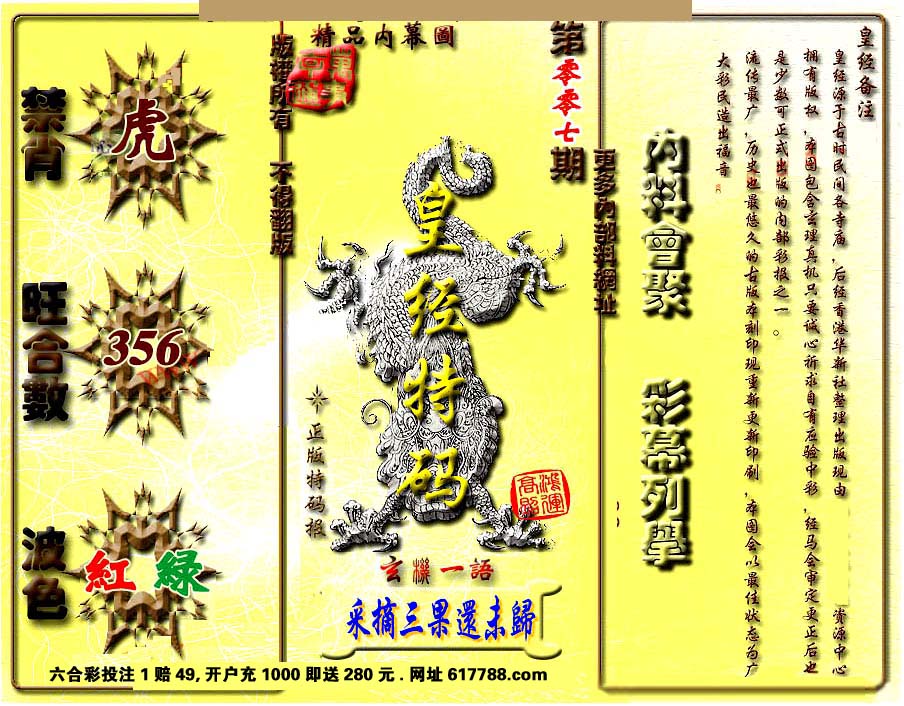 皇经备注
皇经源于古时民间各寺庙,后经香港华新社整理出版现由 资源中心
拥有版权,本图包含玄理真机只要诚心祈求自有应验中彩,经马会审定更正后也
是少数可正式出版的内部彩报之一。
流传最广,历史也最悠久的古版本刻印现重新更新印刷,本图会以最佳状态为广
大彩民造出福音
內料會聚 彩幕列舉
更多內部料網址
第零零七期
精品内幕圖
皇经特码
正版特码报
鴻運高照
玄機一語
采摘三果還未歸
版權所有 不得翻版
禁肖
虎
旺合數
356
波色
紅 綠
六合彩投注 1 赔 49, 开户充 1000 即送 280 元 . 网址 617788.com